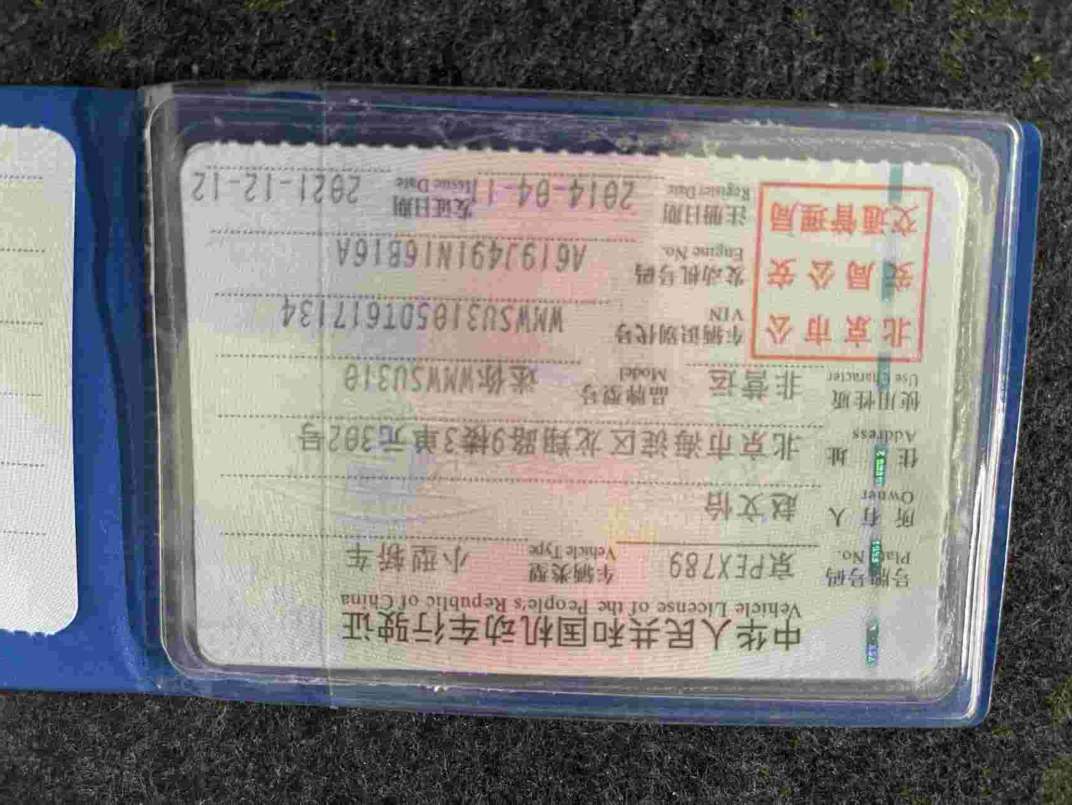 中华人民共和国机动车行驶证
Vehicle License of the People's Republic of China
号牌号码 京PEX789 车辆类型 小型轿车
Plate No. Vehicle Type
所有人 赵文怡
Owner
住址 北京市海淀区龙翔路9楼3单元302号
Address
使用性质 非营运 品牌型号 迷你WMWSU310
Use Character Model
北京市公
安局公安
交通管理局
车辆识别代号 WMWSU3105DT617134
VIN
发动机号码 A619J491N16B16A
Engine No.
注册日期 2014-04-1 发证日期 2021-12-12
Register Date Issue Date